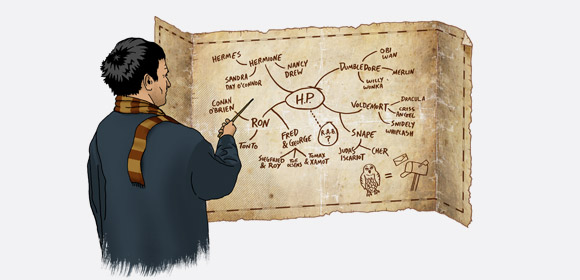 HERMES
HERMIONE
NANCY
DREW
SANDRA
DAY O'CONNOR
CONAN
O'BRIEN
RON
TONTO
FRED
& GEORGE
SIEGFRIED
& ROY
THE
OLSENS
TOMAX
& XAMOT
H.P.
R.A.B.
?
DUMBLEDORE
OBI
WAN
MERLIN
WILLY
WONKA
VOLDEMORT
DRACULA
CRISS
ANGEL
SNIDELY
WHIPLASH
SNAPE
JUDAS
ISCARIOT
CHER
=